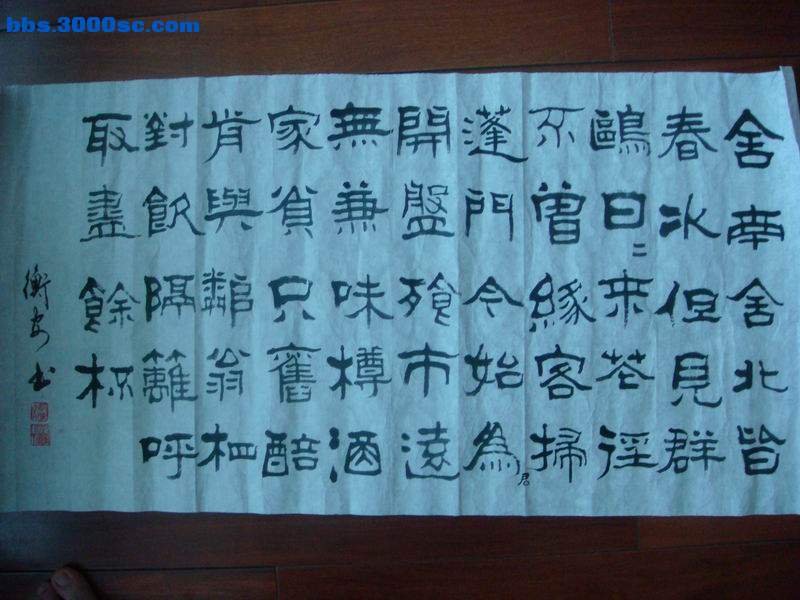 bbs.3000sc.com
舍南舍北皆
春水但見群
鷗日二來花徑
不曾緣客掃
蓬門今始為君
開盤飧市遠
無兼味樽酒
家貧只舊醅
肯與鄰翁相
對飲隔籬呼
取盡餘杯
衡安书